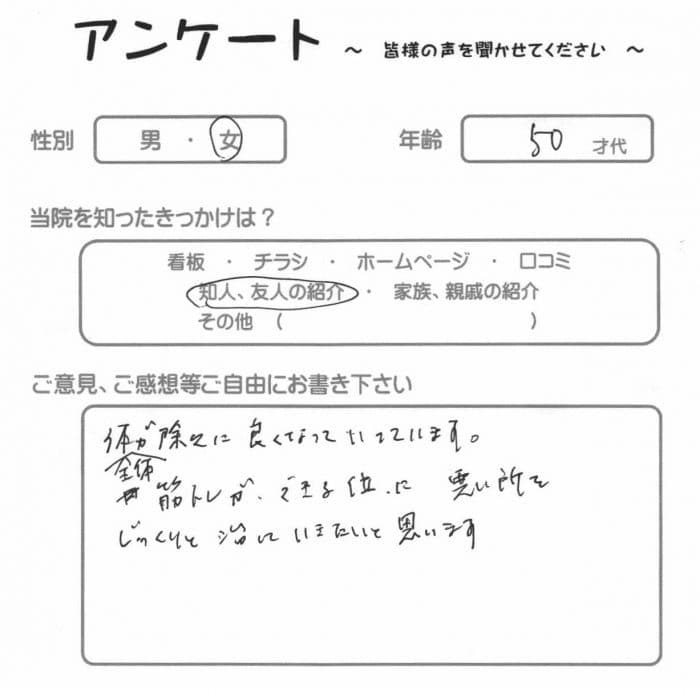 アンケート ～ 皆様の声を聞かせてください ～
性別 男 ・ 女 年齢 50 才代
当院を知ったきっかけは？
看板 ・ チラシ ・ ホームページ ・ 口コミ
知人、友人の紹介 ・ 家族、親戚の紹介
その他 ( )
ご意見、ご感想等ご自由にお書き下さい
体が除々に良くなっていっています。
全体
筋トレができる位に 悪い所を
じっくりと治していきたいと思います